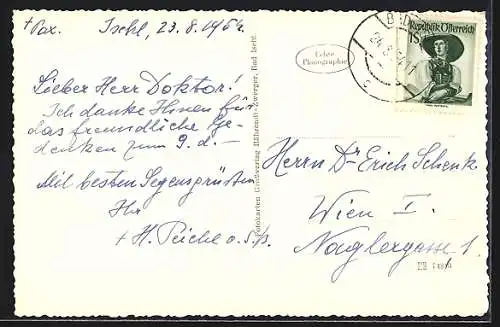 + Pax. Ischl, 23.8.1954.
Lieber Herr Doktor!
Ich danke Ihnen für
das freundliche Ge-
denken zum 9. d. —
Mit besten Segensgrüßen
Ihr
+ H. Peichl o.s.b.
Fotokarten Großverlag Zwerger, Bad Ischl.
Echte
Photographie
Republik Österreich
1S
BAD
24.8.54.17
c
Herrn Dr Erich Schenk
Wien I.
Naglergasse 1.